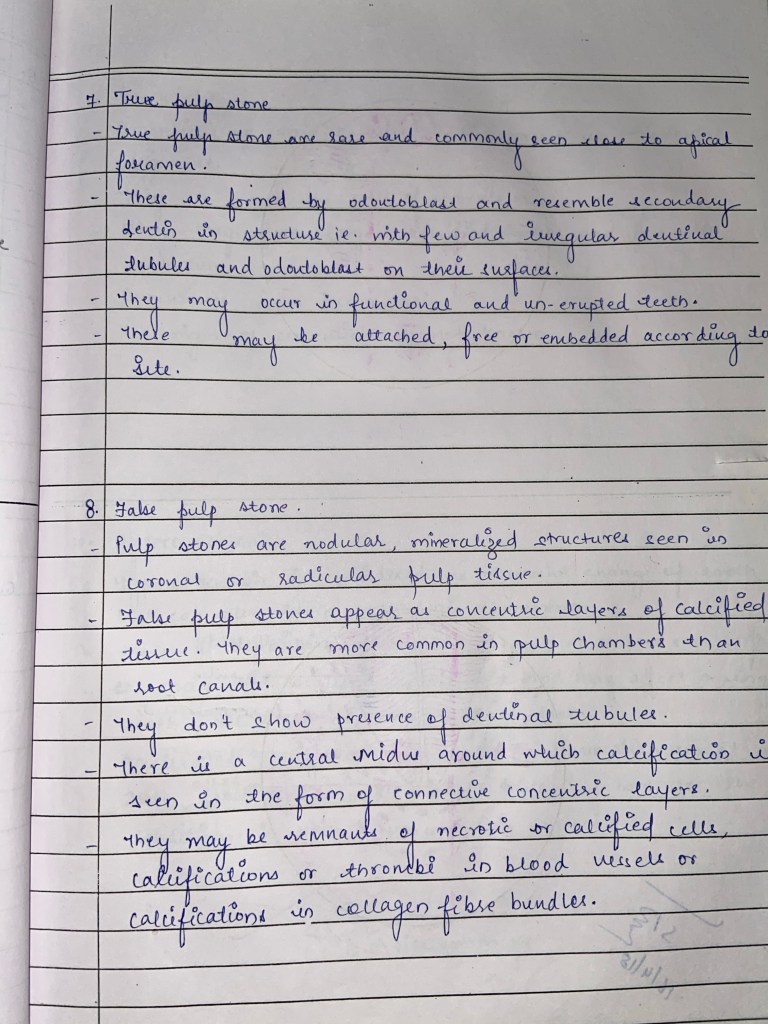 7. True pulp stone
- True pulp stone are rare and commonly seen close to apical
foramen.
- These are formed by odontoblast and resemble secondary
dentin in structure ie. with few and irregular dentinal
tubules and odontoblast on their surfaces.
- They may occur in functional and un-erupted teeth.
- There may be attached, free or embedded according to
site.
8. False pulp stone.
- Pulp stones are nodular, mineralized structures seen in
coronal or radicular pulp tissue.
- False pulp stones appear as concentric layers of calcified
tissue. They are more common in pulp chambers than
root canals.
- They don't show presence of dentinal tubules.
- There is a central nidus around which calcification is
seen in the form of connective concentric layers.
- They may be remnants of necrotic or calcified cells,
calcifications or thrombi in blood vessels or
calcifications in collagen fibre bundles.